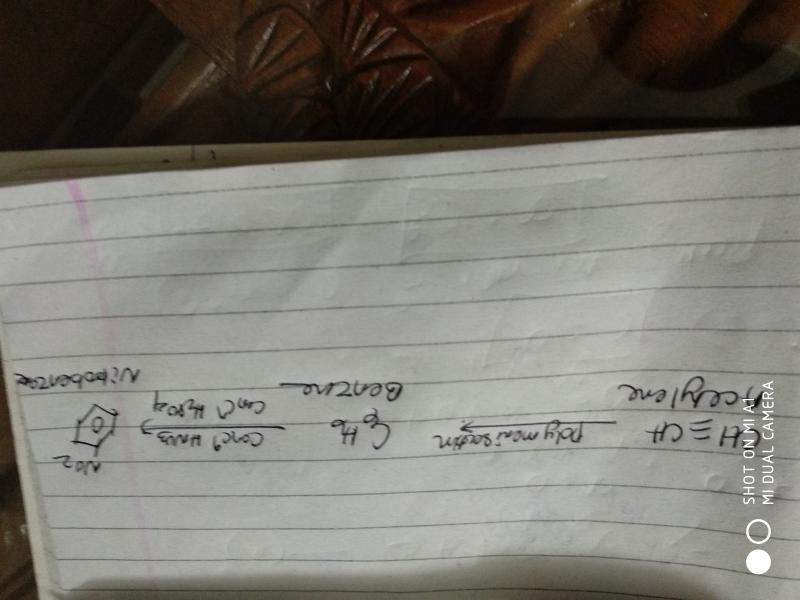 CH ≡ CH polymerisation → C6H6 Conc HNO3 → NO2
Acetylene Benzene Conc H2SO4 Nitrobenzene
SHOT ON MI A1
MI DUAL CAMERA